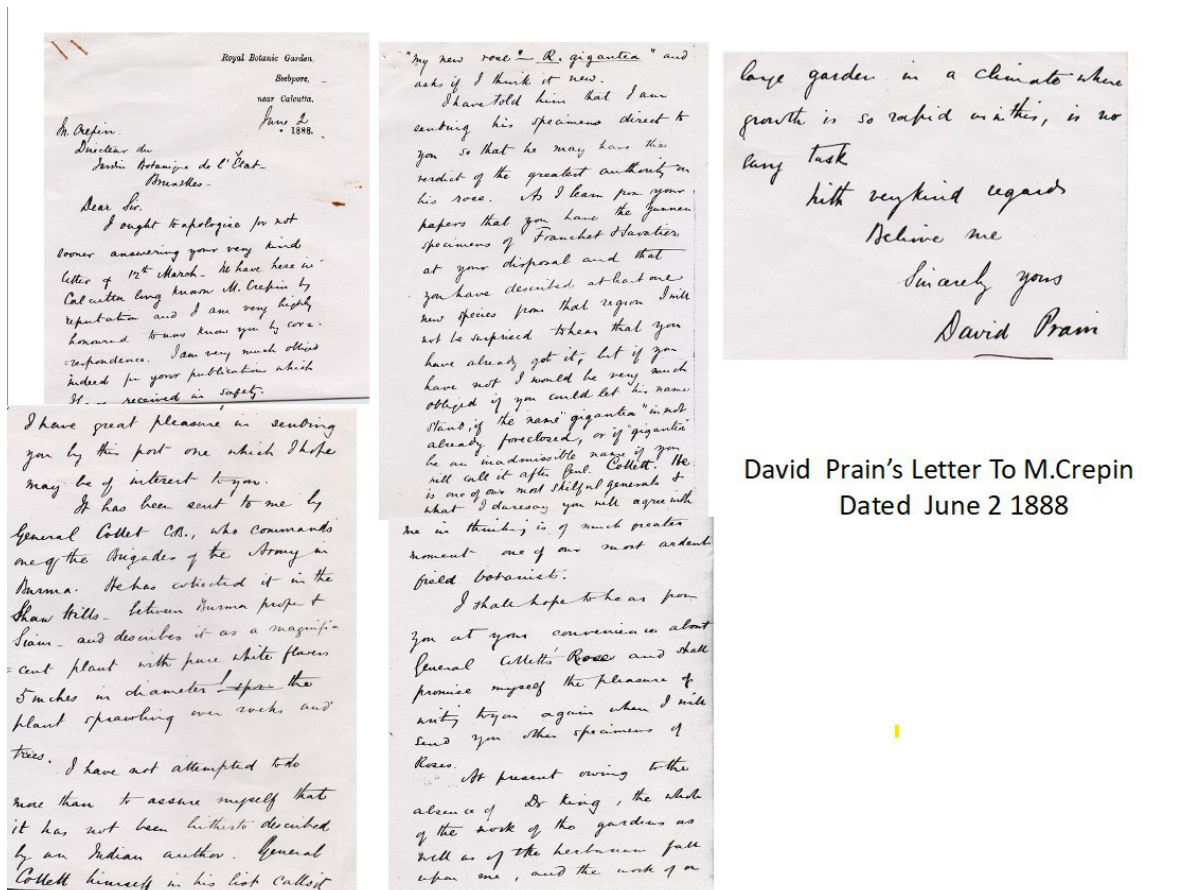 Royal Botanic Garden,
Seebpore,
near Calcutta.
June 2 1888.
M. Crepin
Directeur du
Jardin Botanique de l'État
Bruxelles
Dear Sir.
I ought to apologise for not
sooner answering your very kind
letter of 12th March. We have here in
Calcutta long known M. Crepin by
reputation and I am very highly
honoured to now know you by corr-
=espondence. I am very much obliged
indeed for your publication which
received in safety.
I have great pleasure in sending
you by this post one which I hope
may be of interest to you.
It has been sent to me by
General Collet C.B., who commands
one of the Brigades of the Army in
Burma. He has collected it in the
Shan Hills - between Burma proper &
Siam - and describes it as a magnifi-
=cent plant with pure white flowers
5 inches in diameter! the
plant sprawling over rocks and
trees.
I have not attempted to do
more than to assure myself that
it has not been hitherto described
by an Indian author. General
Collett himself in his list calls it
"my new rose" - R. gigantea" and
asks if I think it new.
I have told him that I am
sending his specimens direct to
you so that he may have the
verdict of the greatest authority on
his rose. As I learn from your
papers that you have the
specimens of Franchet & Savatier
at your disposal and that
you have described at least one
new species from that region I will
not be surprised to hear that you
have already got it; but if you
have not I would be very much
obliged if you could let his name
stand, if the name "gigantea" is not
already foreclosed, or if "gigantea"
be an inadmissible name if you
will call it after Genl. Collett. He
is one of our most skilful generals &
what I daresay you will agree with
me in thinking is of much greater
moment one of our most ardent
field botanists.
I shall hope to hear from
you at your convenience about
General Colletts' Rose and shall
promise myself the pleasure of
writing to you again when I will
send you other specimens of
Roses.
At present owing to the
absence of Dr King, the whole
of the work of the gardens as
well as of the herbarium fall
upon me, and the work of a
large garden in a climate where
growth is so rapid as in this, is no
easy task
With very kind regards
Believe me
Sincerely yours
David Prain
David Prain's Letter To M.Crepin
Dated June 2 1888